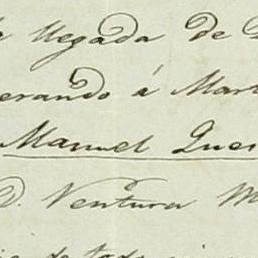 llegada de
erando á Mart
Manuel Ques
D. Ventura M
de todo